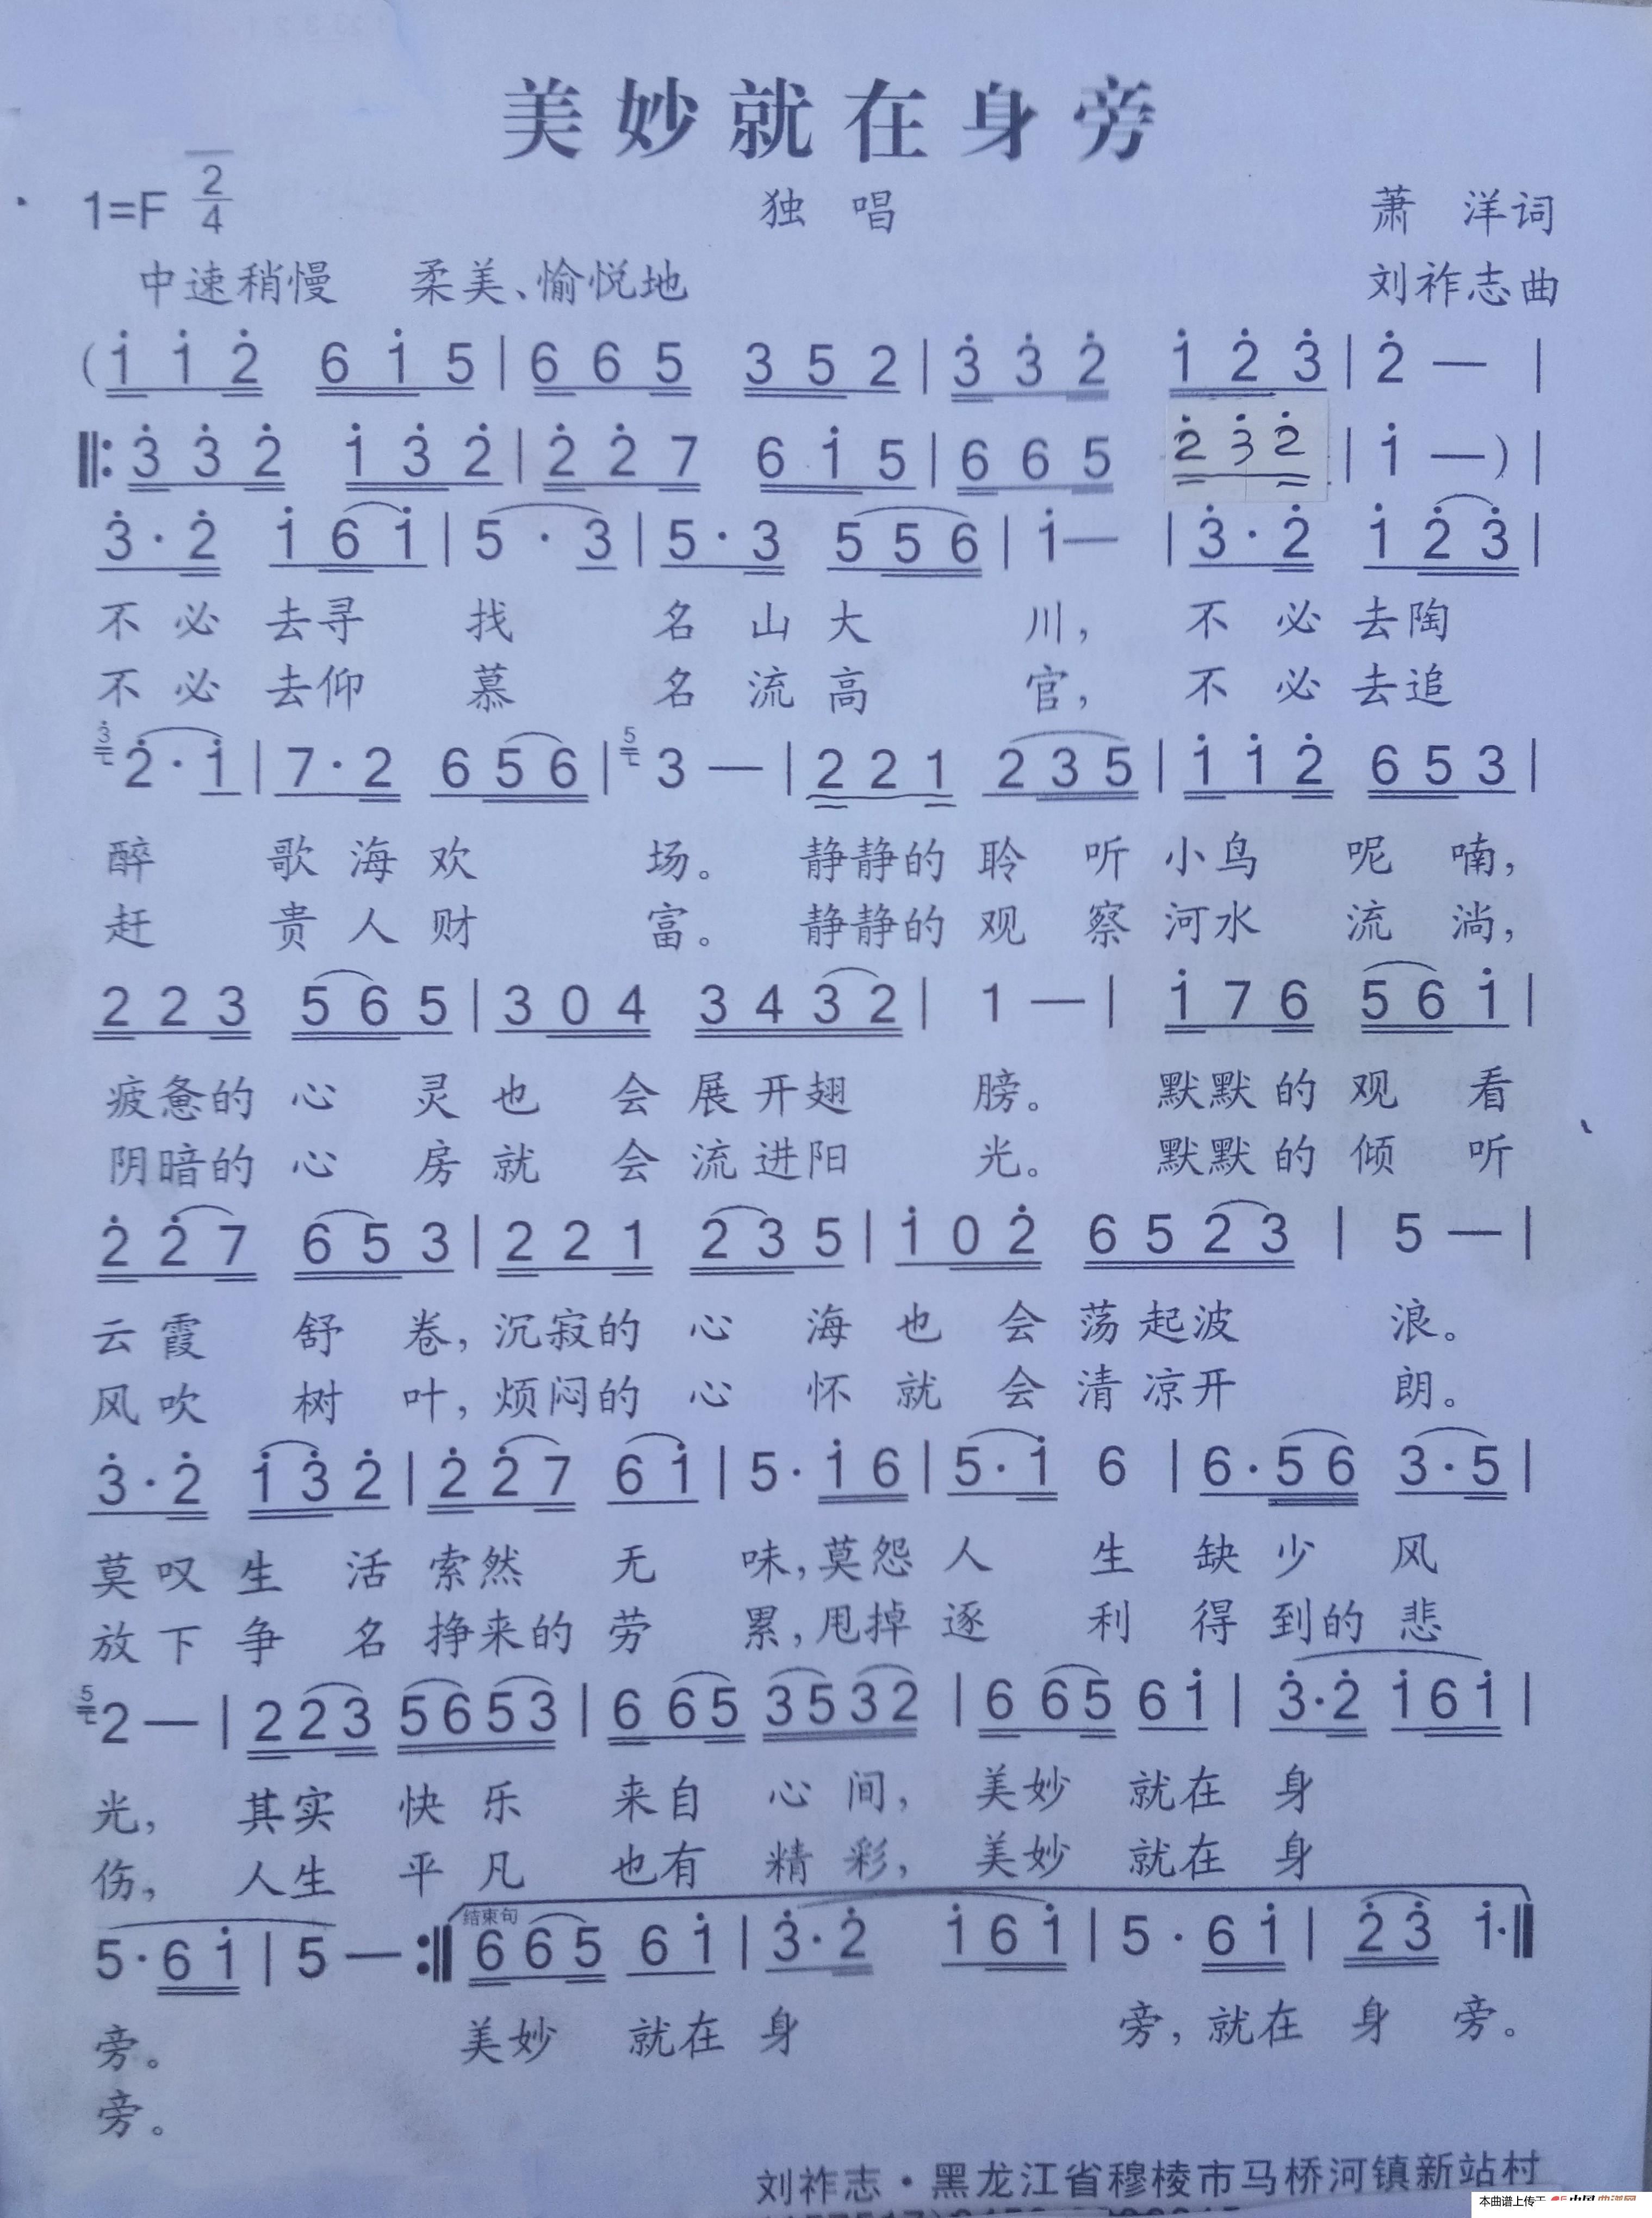 美妙就在身旁
1=F 2/4 独 唱 萧 洋词
中速稍慢 柔美、愉悦地 刘祚志曲
(i̇ i̇ 2̇ 6 i̇ 5 | 6 6 5 3 5 2 | 3̇ 3̇ 2̇ i̇ 2̇ 3̇ | 2̇ — |
‖: 3̇ 3̇ 2̇ i̇ 3̇ 2̇ | 2̇ 2̇ 7 6 i̇ 5 | 6 6 5 2̇ 3̇ 2̇ | i̇ —) |
3̇ · 2̇ i̇ 6 i̇ | 5 · 3 | 5 · 3 5 5 6 | i̇ — | 3̇ · 2̇ i̇ 2̇ 3̇ |
不 必 去寻 找 名 山 大 川, 不 必 去陶
不 必 去仰 慕 名 流 高 官, 不 必 去追
3̇ 2̇ · i̇ | 7 · 2 6 5 6 | 5 3 — | 2 2 1 2 3 5 | i̇ i̇ 2̇ 6 5 3 |
醉 歌 海 欢 场。 静静的 聆 听 小鸟 呢 喃,
赶 贵 人 财 富。 静静的 观 察 河水 流 淌,
2 2 3 5 6 5 | 3 0 4 3 4 3 2 | 1 — | i̇ 7 6 5 6 i̇ |
疲惫的 心 灵 也 会 展 开翅 膀。 默默 的 观 看
阴暗的 心 房 就 会 流 进阳 光。 默默 的 倾 听
2̇ 2̇ 7 6 5 3 | 2 2 1 2 3 5 | i̇ 0 2̇ 6 5 2 3 | 5 — |
云 霞 舒 卷, 沉寂的 心 海 也 会 荡 起波 浪。
风 吹 树 叶, 烦闷的 心 怀 就 会 清 凉开 朗。
3̇ · 2̇ i̇ 3̇ 2̇ | 2̇ 2̇ 7 6 i̇ | 5 · i̇ 6 | 5 · i̇ 6 | 6 · 5 6 3 · 5 |
莫 叹 生 活 索然 无 味, 莫怨 人 生 缺 少 风
放 下 争 名 挣来的 劳 累, 甩掉 逐 利 得 到的 悲
5 2 — | 2 2 3 5 6 5 3 | 6 6 5 3 5 3 2 | 6 6 5 6 i̇ | 3̇ · 2̇ i̇ 6 i̇ |
光, 其实 快 乐 来自 心 间, 美妙 就在 身
伤, 人生 平 凡 也有 精 彩, 美妙 就在 身
5 · 6 i̇ | 5 — :‖ 结束句 6 6 5 6 i̇ | 3̇ · 2̇ i̇ 6 i̇ | 5 · 6 i̇ | 2̇ 3̇ i̇ · ‖
旁。 美妙 就在 身 旁, 就在 身 旁。
旁。
刘祚志·黑龙江省穆棱市马桥河镇新站村
本曲谱上传于